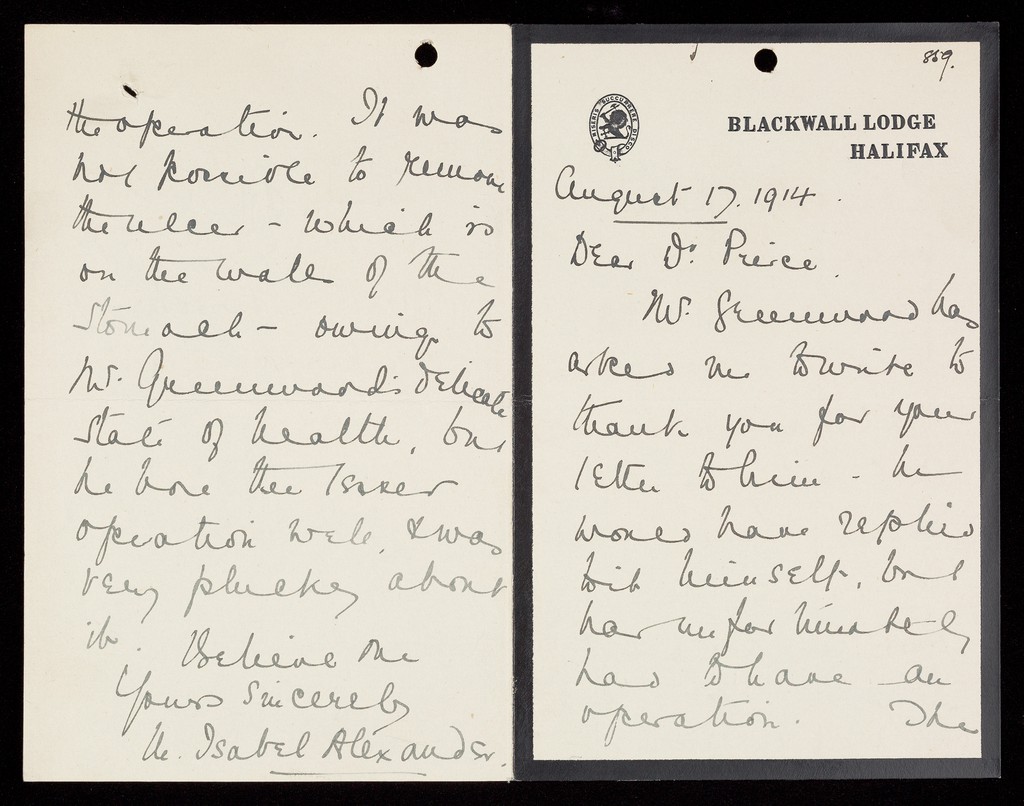 859.
BLACKWALL LODGE
HALIFAX
August 17. 1914.
Dear Dr. Peirce.
Mr. Greenwood has
asked me to write to
thank you for your
letter to him - he
would have replied
to it himself, but
has unfortunately
had to have an
operation. The
the operation. It was
not possible to remove
the ulcer - which is
on the wall of the
stomach - owing to
Mr. Greenwood's delicate
state of health, but
he bore the lesser
operation well, & was
very plucky about
it. Believe me
Yours sincerely
M. Isabel Alexander.